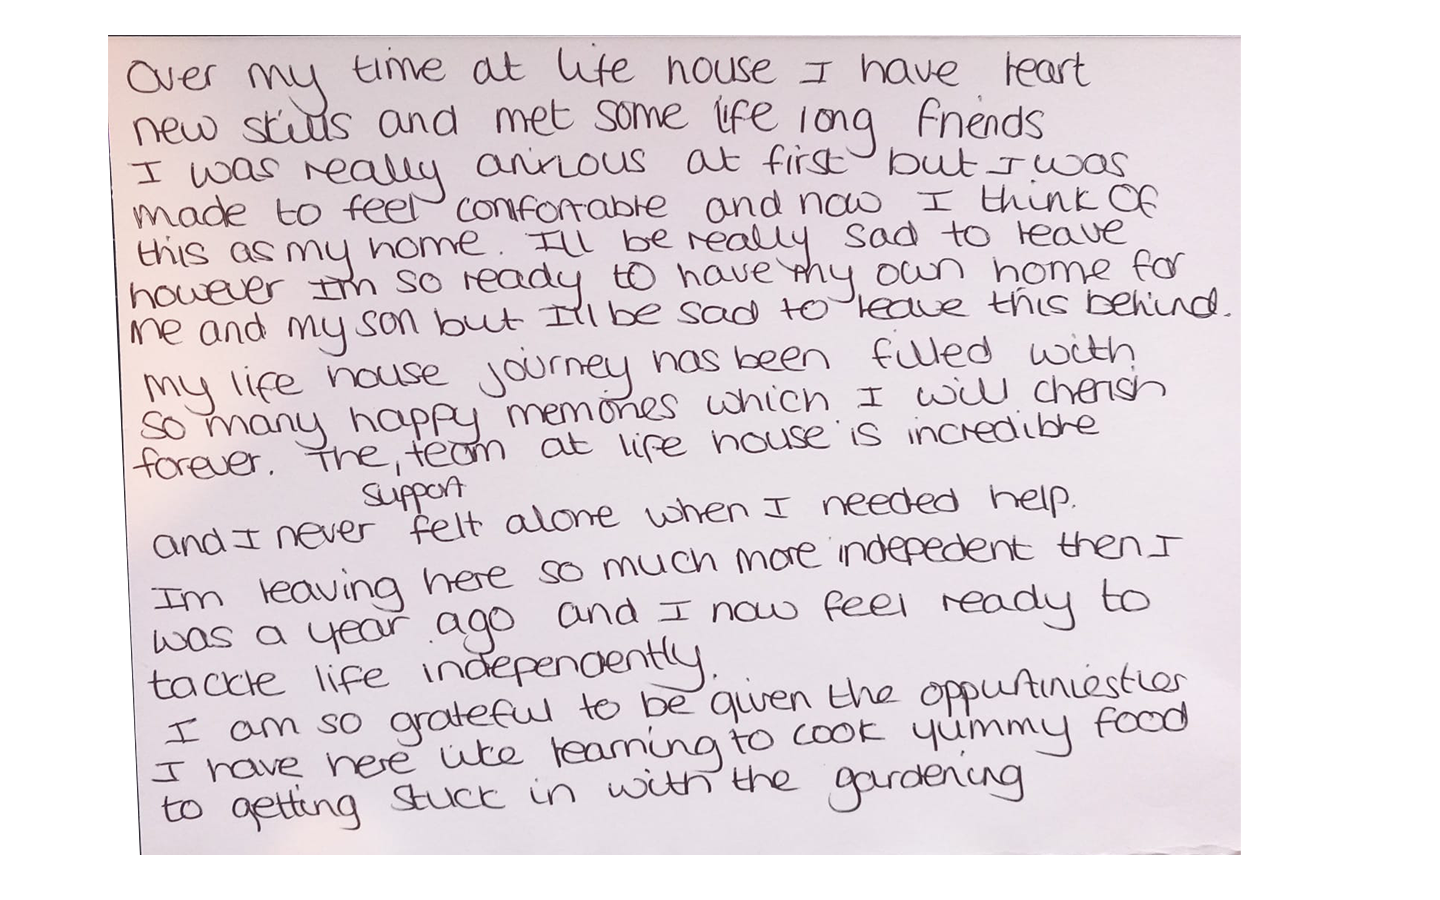 Over my time at life house I have leart
new skills and met some life long friends
I was really anxious at first but I was
made to feel comfortable and now I think of
this as my home. Ill be really sad to leave
however Im so ready to have my own home for
me and my son but Ill be sad to leave this behind.
My life house journey has been filled with
so many happy memories which I will cherish
forever. The, team at life house is incredible
support
and I never felt alone when I needed help.
Im leaving here so much more indepedent then I
was a year ago and I now feel ready to
tackle life independently.
I am so grateful to be given the oppurtiniesties
I have here like learning to cook yummy food
to getting stuck in with the gardening